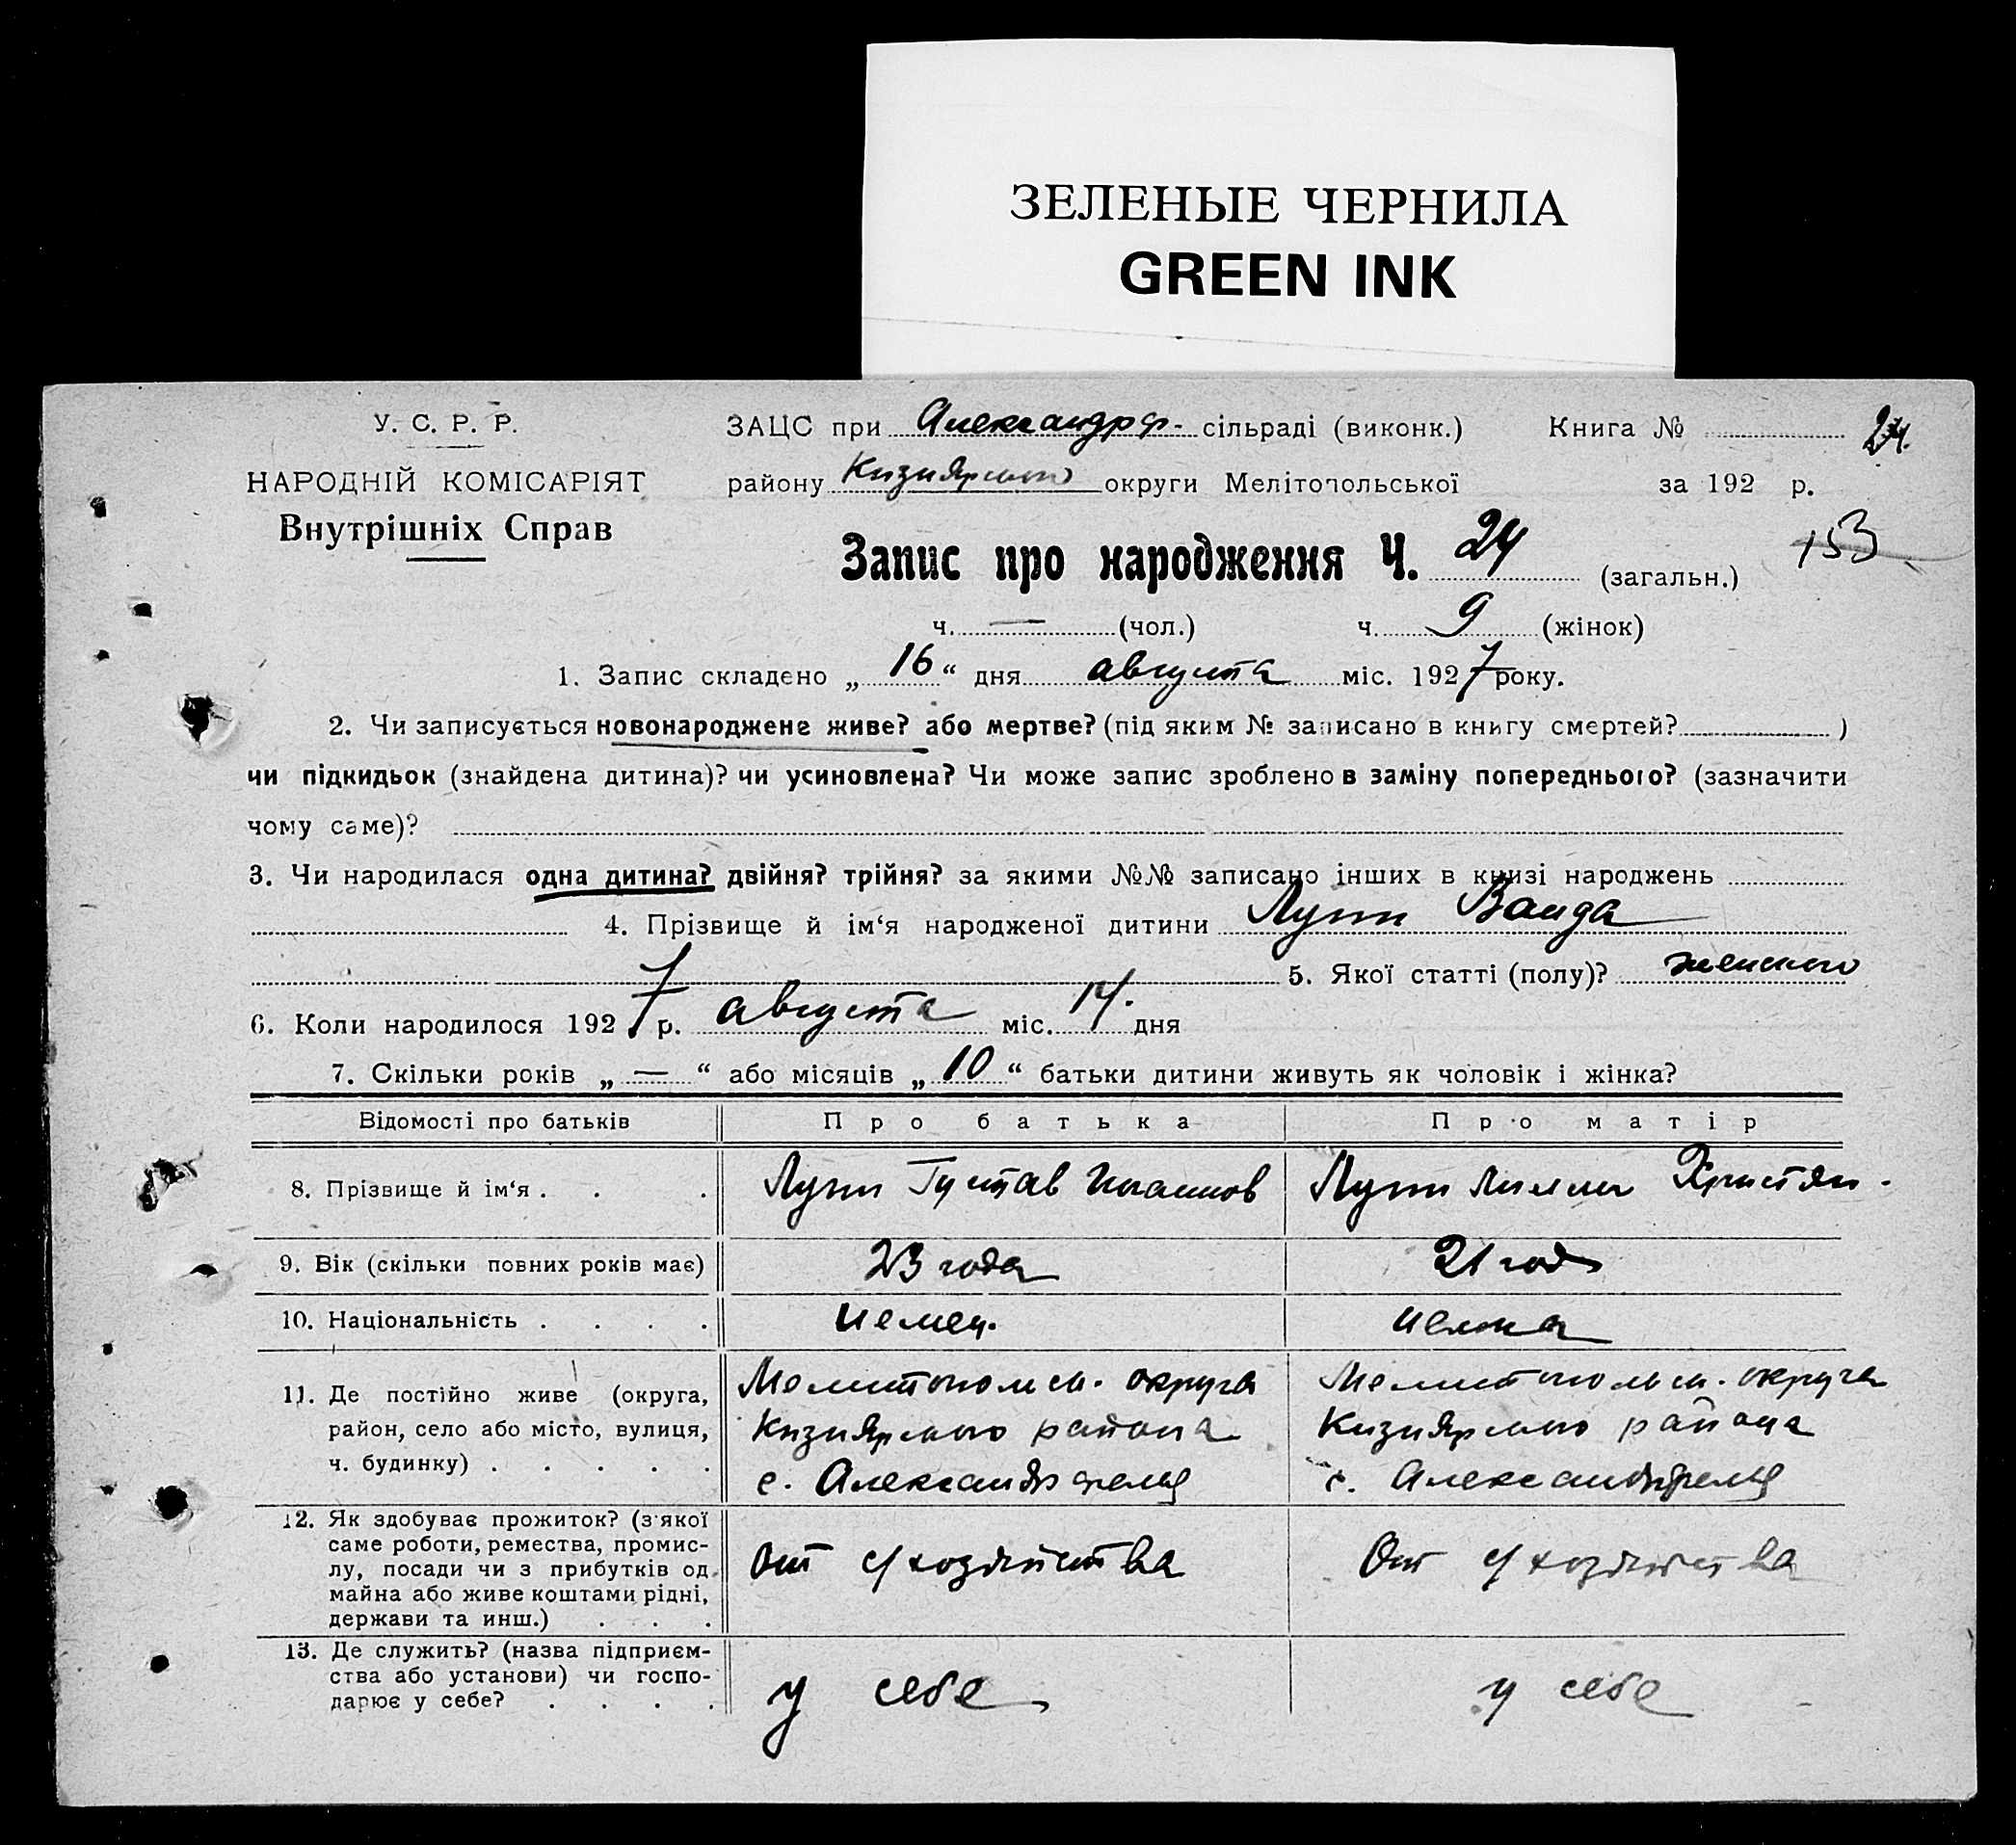 ЗЕЛЕНЫЕ ЧЕРНИЛА
GREEN INK
У. С. Р. Р.
НАРОДНІЙ КОМІСАРІЯТ
Внутрішніх Справ
ЗАЦС при Александрф- сільраді (виконк.) Книга № 24.
району Кизиярського округи Мелітопольської за 192 р.
Запис про народження Ч. 24 (загальн.) 153
ч. — (чол.) ч. 9 (жінок)
1. Запис складено „ 16 “ дня августа міс. 1927 року.
2. Чи записується новонароджене живе? або мертве? (під яким № записано в книгу смертей? )
чи підкидьок (знайдена дитина)? чи усиновлена? Чи може запис зроблено в заміну попереднього? (зазначити
чому саме)?
3. Чи народилася одна дитина? двійня? трійня? за якими №№ записано інших в книзі народжень
4. Прізвище й ім‘я народженої дитини Лутц Ванда
5. Якої статті (полу)? женского
6. Коли народилося 1927 р. августа міс. 14. дня
7. Скільки років „ — “ або місяців „ 10 “ батьки дитини живуть як чоловік і жінка?
Відомості про батьків Про батька Про матір
8. Прізвище й ім‘я . . . Лутц Густав Лутц Лилли Христян.
9. Вік (скільки повних років має) 23 года 21 год
10. Національність . . . . немец. немка
11. Де постійно живе (округа,
район, село або місто, вулиця,
ч. будинку) . . . . .
Мелитопольск. округа
Кизиярского района
с. Александрфельд
Мелитопольск. округа
Кизиярского района
с. Александрфельд
12. Як здобуває прожиток? (з якої
саме роботи, ремества, промис-
лу, посади чи з прибутків од
майна або живе коштами рідні,
держави та инш.) . . .
от с/хозяйства
От с/хозяйства
13. Де служить? (назва підприєм-
ства або установи) чи госпо-
дарює у себе? . . . .
у себе
у себе